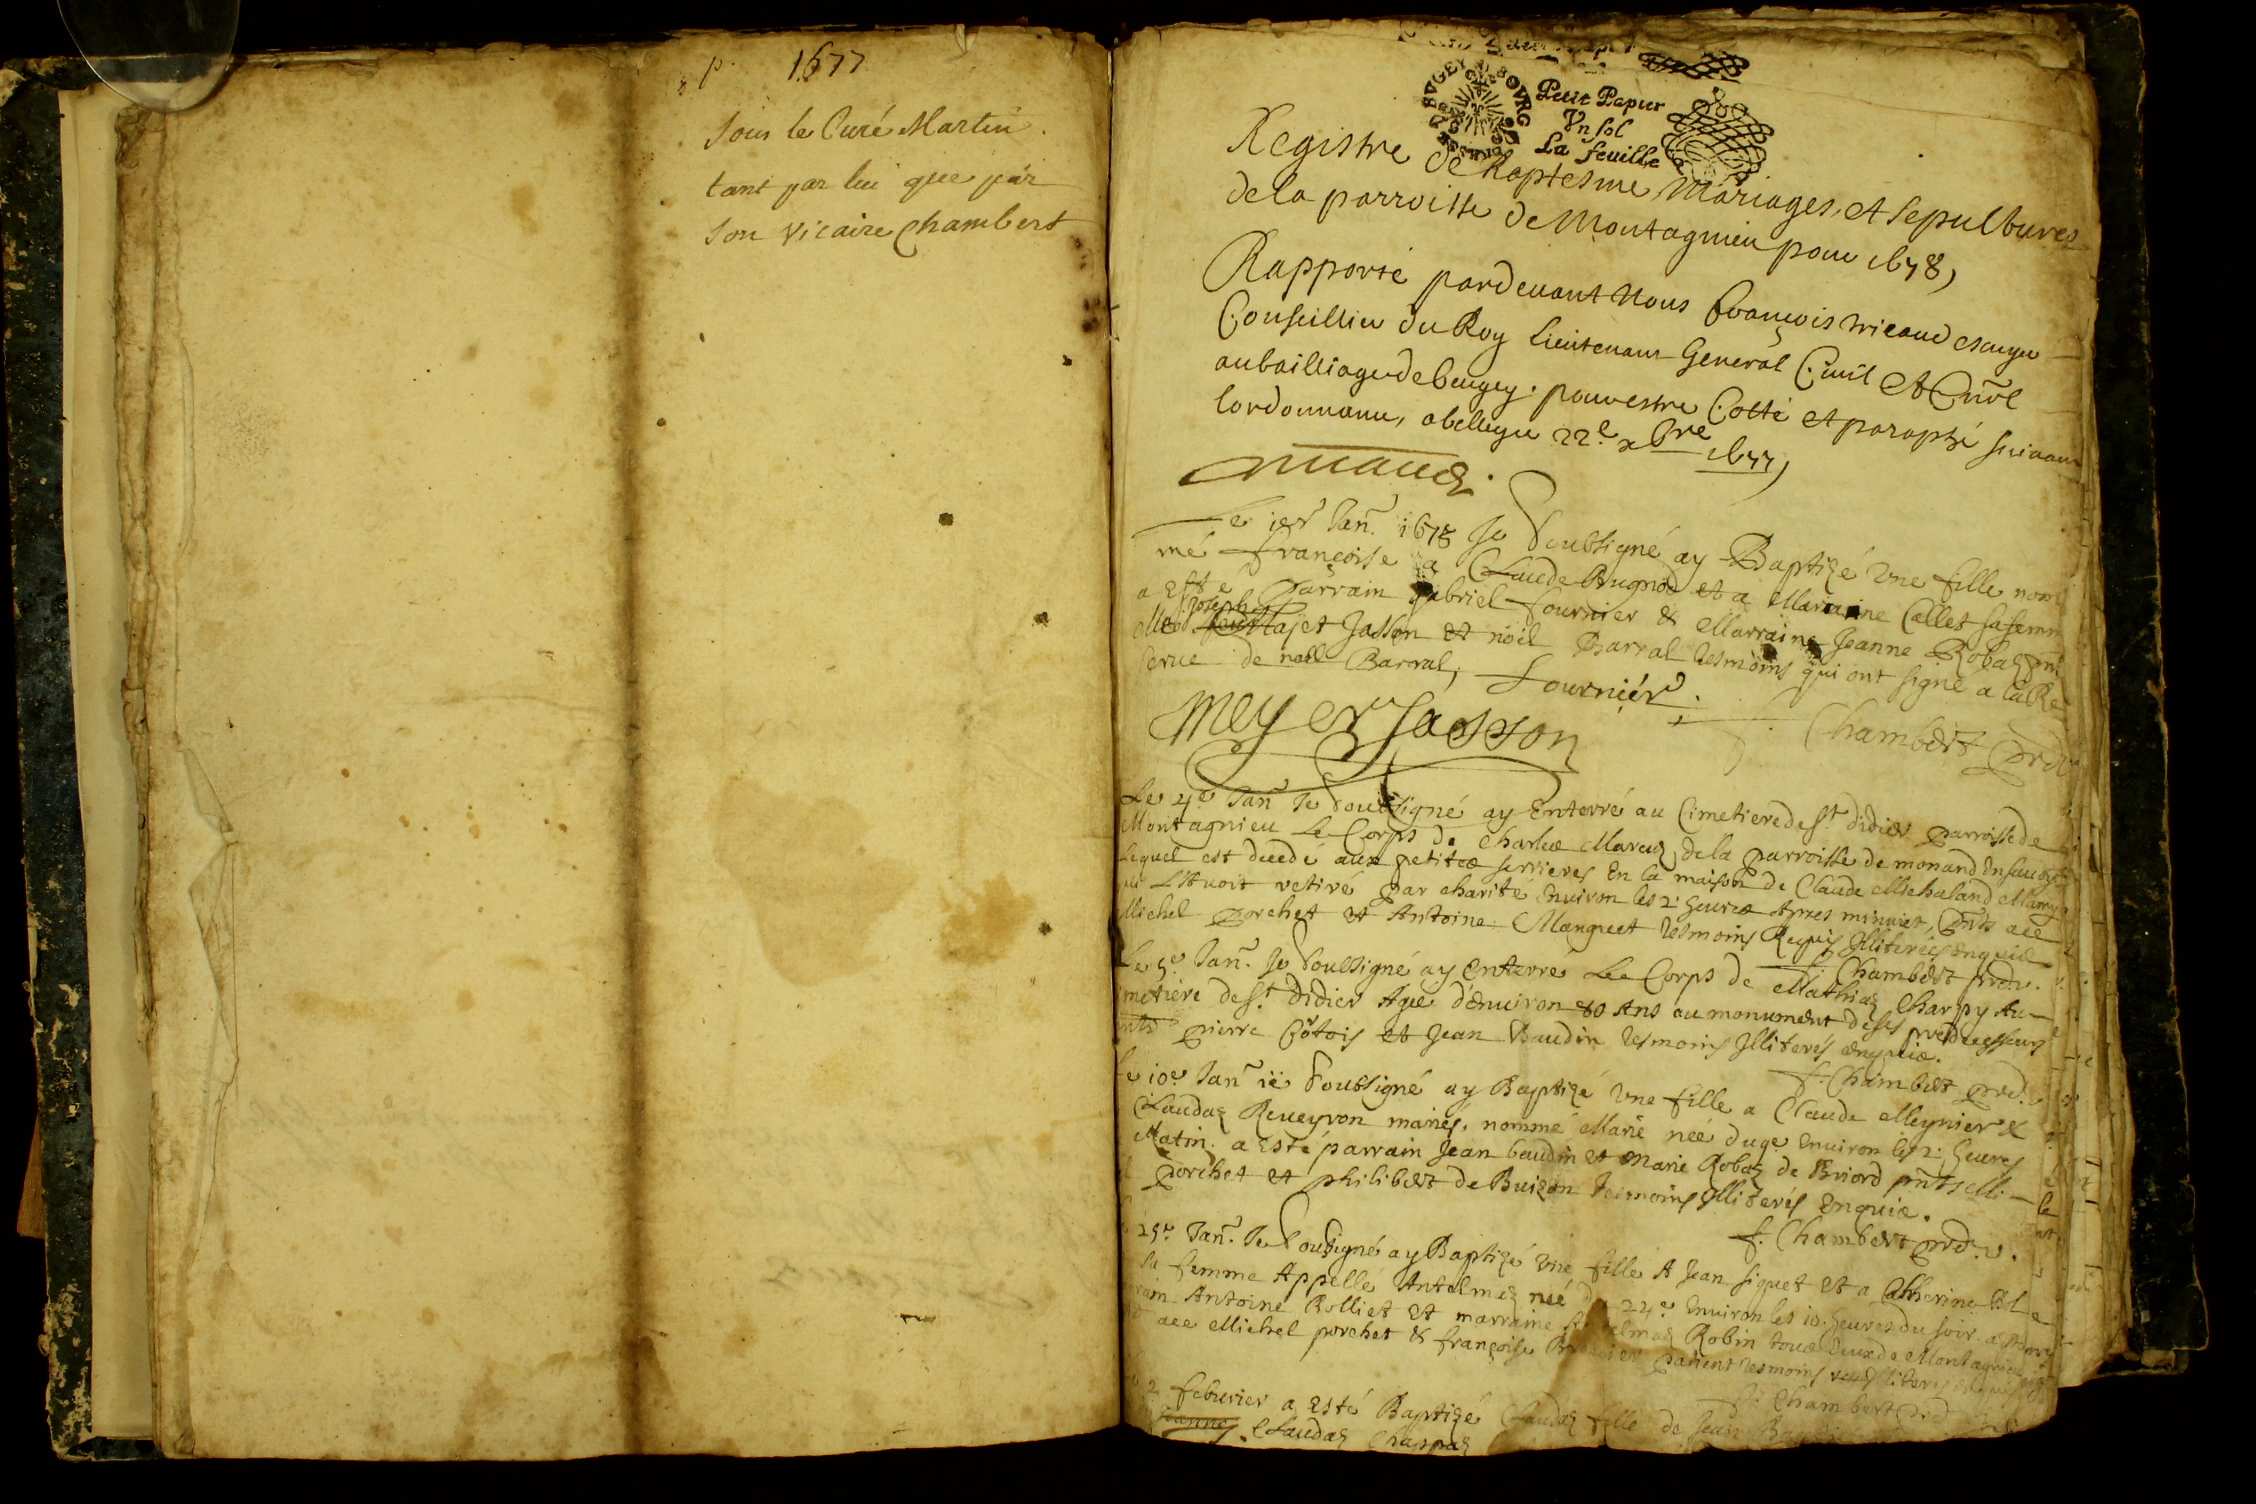 p. 1677
Sous le Curé Martin.
tant par lui que par
Son Vicaire Chambert
BVGEY BOVRG BRESSE
Petit Papier
Vn sol
La feuille
Registre de Baptesme, Mariages, et sepultures
de la parroisse de Montagnieu pour 1678,
Rapporté pardeuant Nous François tricaud escuyer
Conseillier du Roy lieutenant General Ciuil et Crim̃l
au bailliage de beugey. pour estre Cotté et paraphé suiuant
lordonnance, a belley ce 22e xbre 1677,
Le ier Jan. 1678 Je soubsigné ay Baptizé vne fille nom
mé françoise a Claude Brugnod et a Marraine Callet sa femm
a Esté parrain gabriel fournier & Marraine Jeanne Robaz
Joseph Majet Jasson et noël Barral tesmoins qui ont signé a la Re
serue de noel Barral, fournier.
f. Chambert
Meyer Jasson
Le 4e Jan Je soubsigné ay Enterré au Cimetiere de st didier parroisse de
Montagnieu Le Corps de Charles Marcuz de la parroisse de monand En sauoye
Lequel est decedé aux petites serrieres En la maison de Claude Michaland Mamy
Lauoit retiré par charité Enuiron les 2 heures Apres minuict,
Michel porchet et Antoine Manguet tesmoins Requis Illiterés Enquis
f. Chambert
Le 5e Jan. Je soubsigné ay Enterré Le Corps de Mathiaz Charpy Au
metiere de st didier Agé d'enuiron 80 Ans au monument de ses predecesseurs
pierre Cotois et Jean Baudin tesmoins Illiterés enquis.
f. Chambert
Le 10e Jan ie soubsigné ay Baptizé vne fille a Claude Meynier &
Claudaz Reueyron mariés, nommé Marie neé du 9e Enuiron les 2 heures
Matin. a Esté parrain Jean baudin et Marie Robaz de Briord
porchet et philibert de Buizon tesmoins Illiterés Enquis.
f. Chambert
25e Jan. Je soubsigné ay Baptizé vne fille A Jean siquet et a Catherine
sa femme Appellé Antelmaz neé du 24e Enuiron les 10. heures du soir.
Antoine Rolliet et marraine Robin tous deux de Montagnieu
Michel porchet & françoise tesmoins
f. Chambert
2 feburier a Esté Baptizé Claudaz fille de Jean
Claudaz Chappaz